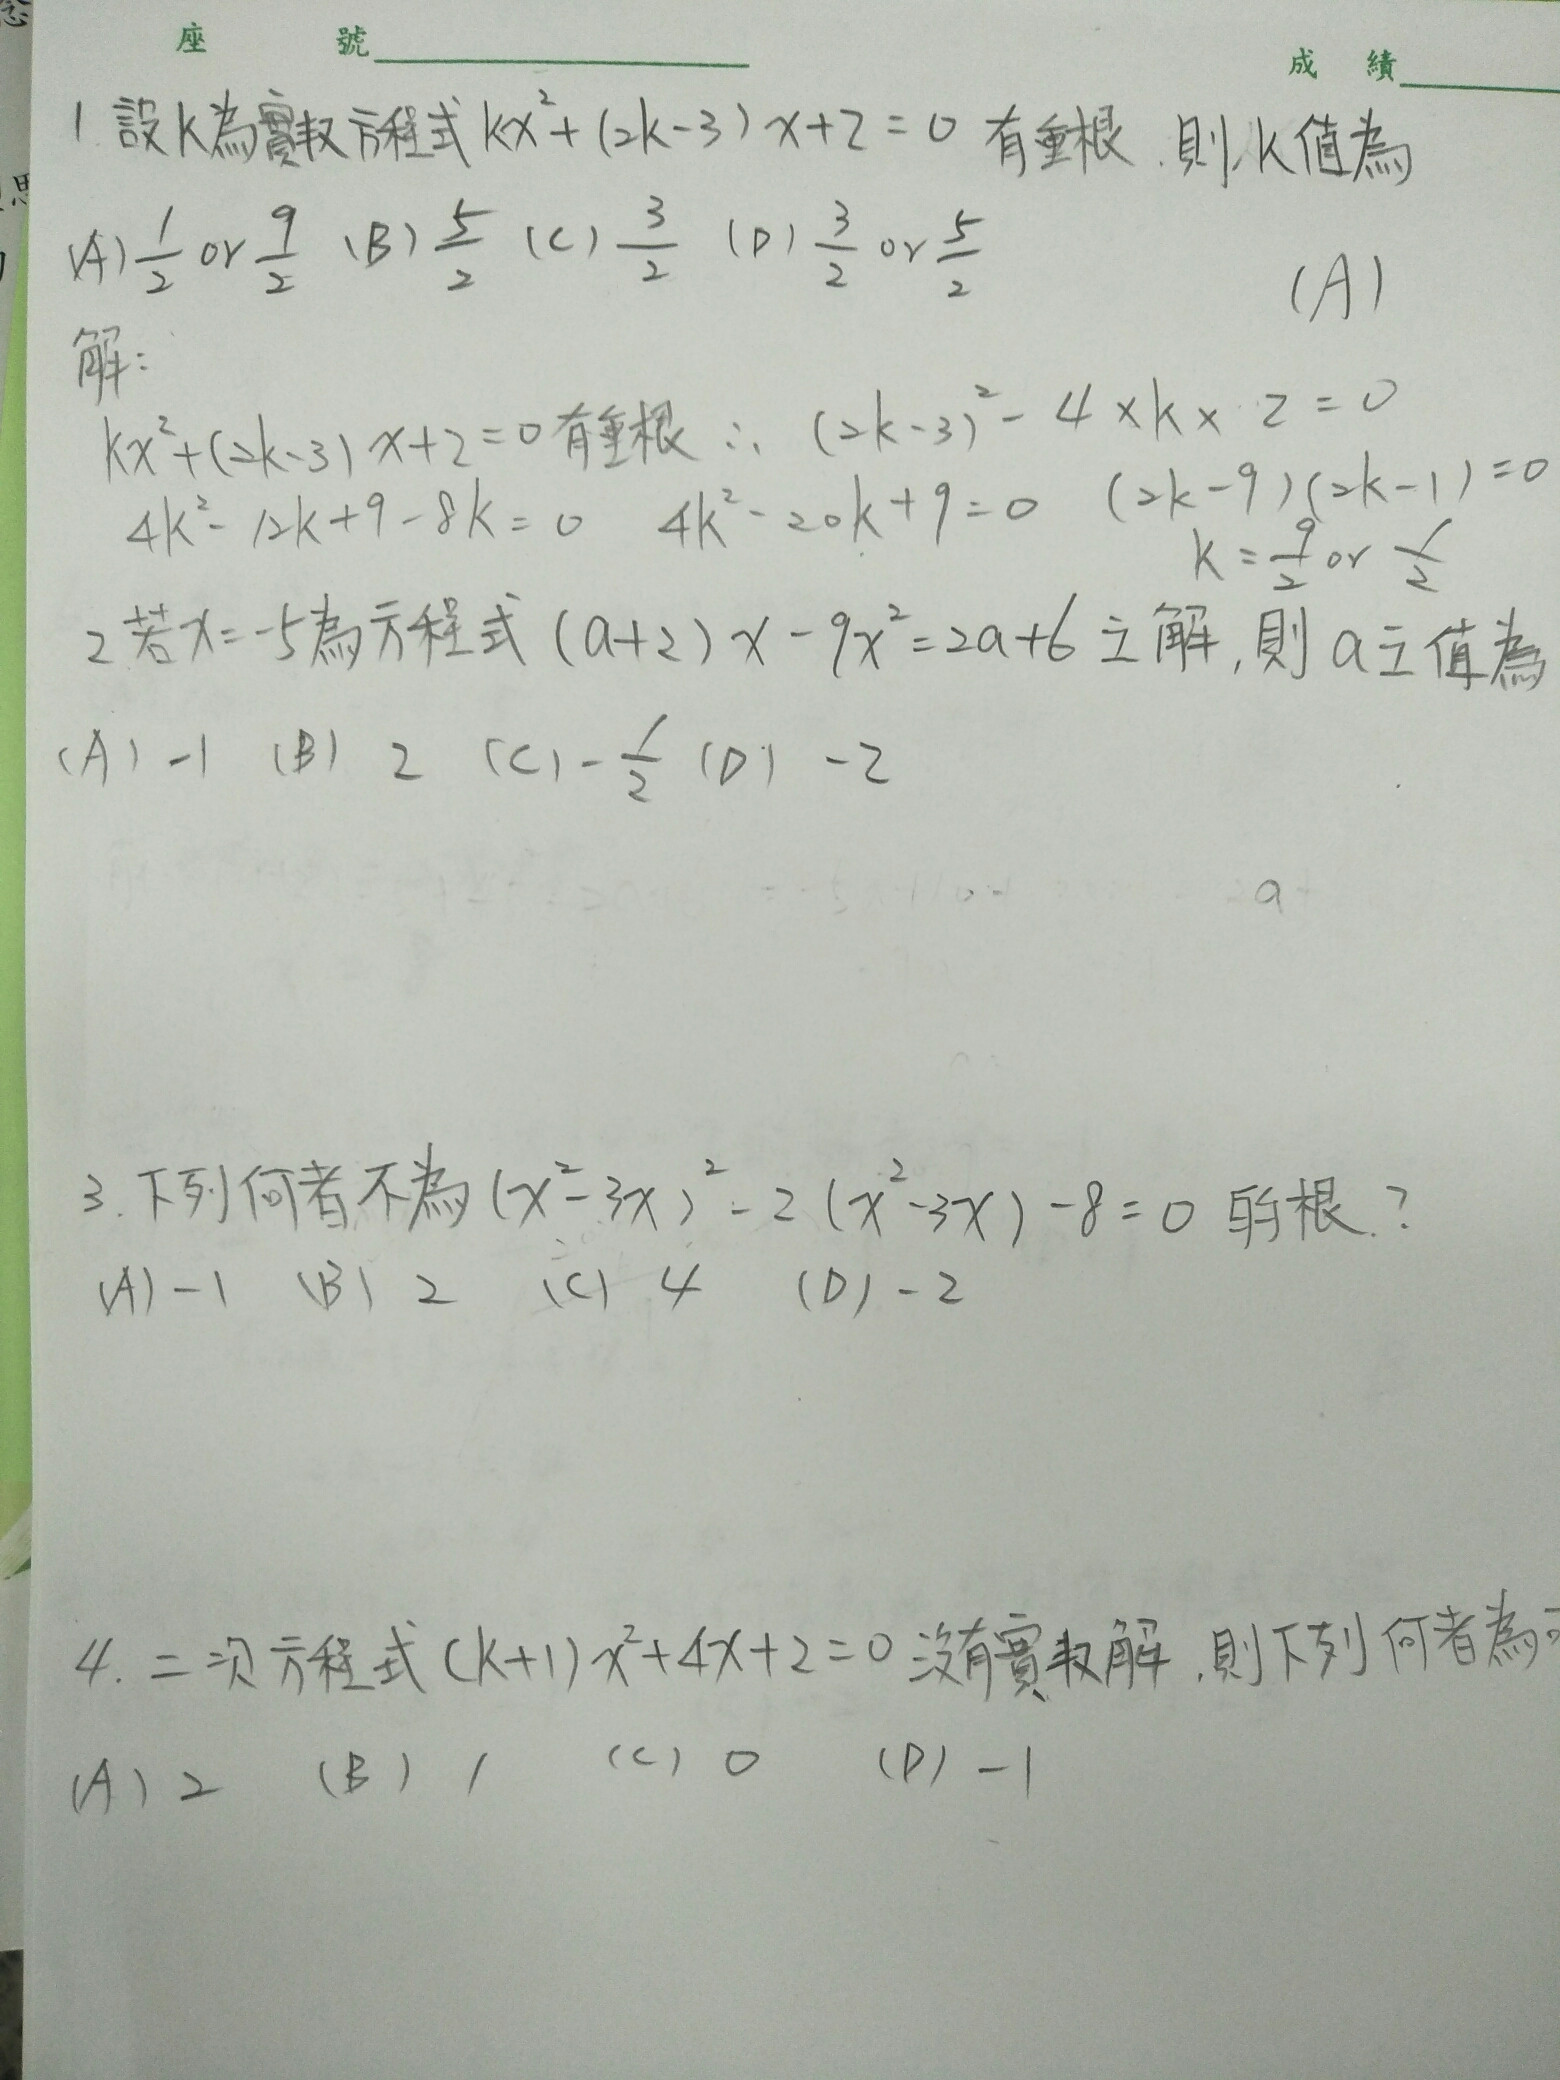 座 號 成 績
1 設k為實数方程式kx²+(2k-3)x+2=0 有重根,則k值為
(A) 1/2 or 9/2 (B) 5/2 (C) 3/2 (D) 3/2 or 5/2
(A)
解:
kx²+(2k-3)x+2=0有重根 ∴ (2k-3)²-4×k×2=0
4k²-12k+9-8k=0 4k²-20k+9=0 (2k-9)(2k-1)=0
k=9/2 or 1/2
2 若x=-5為方程式(a+2)x-9x²=2a+6之解,則a之值為
(A) -1 (B) 2 (C) -1/2 (D) -2
a
3.下列何者不為(x²-3x)²-2(x²-3x)-8=0 的根.?
(A) -1 (B) 2 (C) 4 (D) -2
4.二次方程式(k+1)x²+4x+2=0沒有實数解,則下列何者為
(A) 2 (B) 1 (C) 0 (D) -1